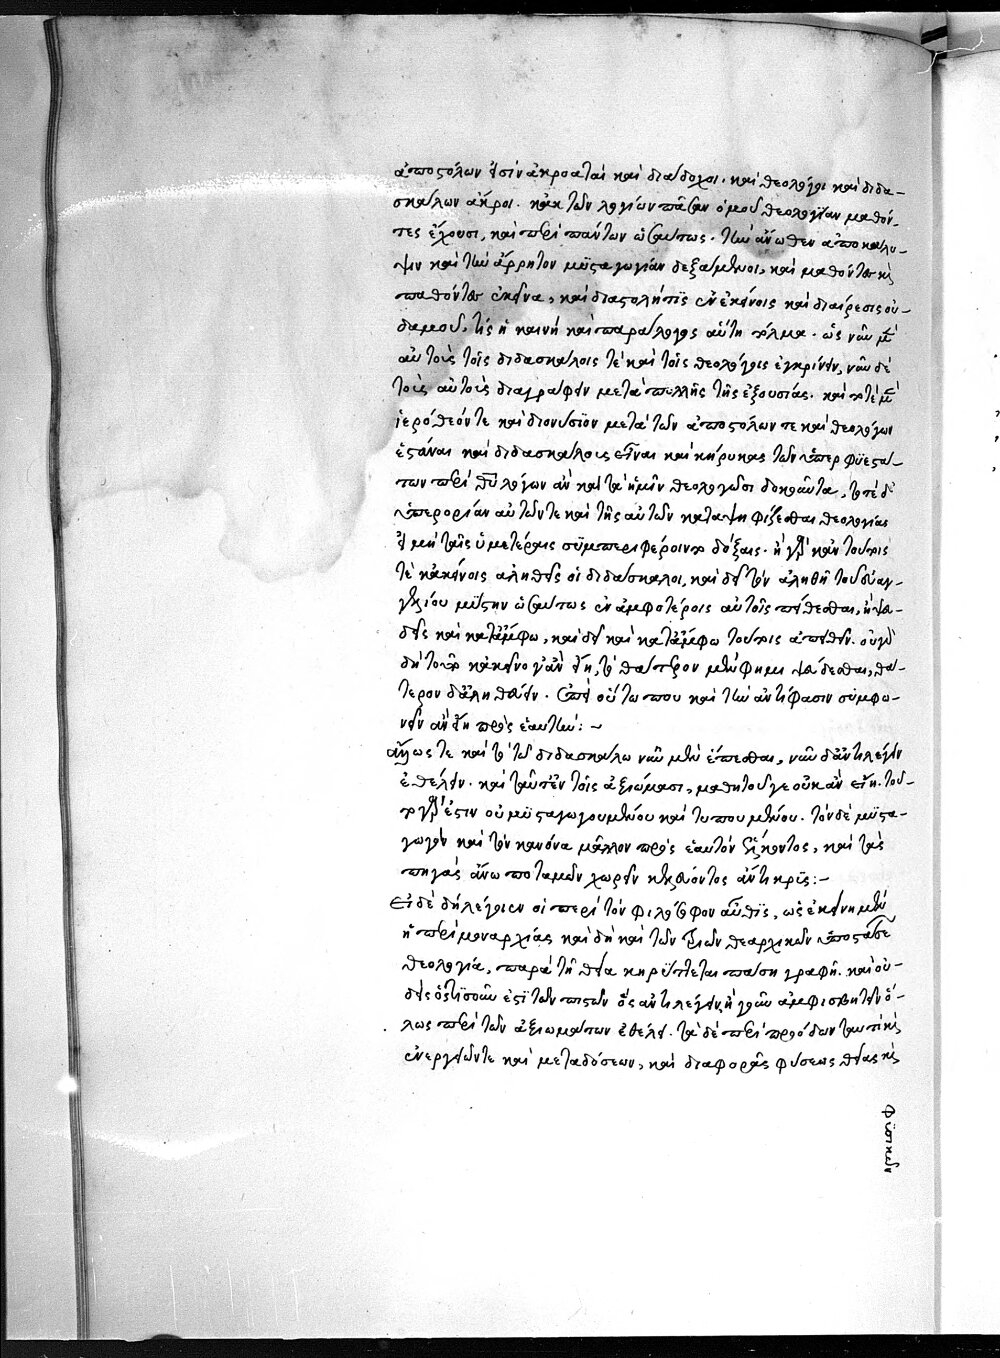 ἀποστόλων εἰσὶν ἀκροαταὶ καὶ διάδοχοι. καὶ θεολόγοι καὶ διδα-
σκάλων ἄκροι. κἀκ τῶν λογίων πᾶσαν ὁμοῦ θεολογίαν μαθόν-
τες ἔχουσι, καὶ περὶ πάντων ὡσαύτως. τὴν ἄνωθεν ἀποκάλυ-
ψιν καὶ τὴν ἄρρητον μυσταγωγίαν δεξάμενοι, καὶ μαθόντες καὶ
παθόντες ἐκεῖνα, καὶ διαστολή τις ἐν ἐκείνοις καὶ διαίρεσις οὐ-
δαμοῦ, τίς ἡ καινὴ καὶ παράλογος αὕτη τόλμα. ὡς νῦν μὲν
αὐτοὺς τοῖς διδασκάλοις τὲ καὶ τοῖς θεολόγοις ἐγκρίνειν, νῦν δὲ
τοὺς αὐτοὺς διαγράφειν μετὰ πολλῆς τῆς ἐξουσίας. καὶ ποτὲ μὲν
ἱερόθεόν τε καὶ διονύσιον μετὰ τῶν ἀποστόλων τε καὶ θεολόγων
ἑστάναι καὶ διδασκάλους εἶναι καὶ κήρυκας τῶν ὑπερφυεστά-
των περὶ θεοῦ λόγων ἂν κατὰ ἡμῖν θεολογῶσι δοκοῦντα, ποτὲ δὲ
ὑπερορίαν αὐτῶν τε καὶ τῆς αὐτῶν καταψηφίζεσθαι θεολογίας
εἰ μὴ ταῖς ὑμετέραις συμπεριφέροιντο δόξαις. ἢ γὰρ κἂν τούτοις
τὲ κἀκείνοις ἀληθεῖς οἱ διδάσκαλοι, καὶ δεῖ τὸν ἀληθῆ τοῦ εὐαγ-
γελίου μύστην ὡσαύτως ἐν ἀμφοτέροις αὐτοῖς πείθεσθαι, ἢ ψευ-
δεῖς καὶ κατάμφω, καὶ δεῖ καὶ κατάμφω τούτοις ἀπειθεῖν. οὐ γὰρ
δὴ τοῦτο κἀκεῖνο γ' ἂν εἴη, τὸ θάτερον μὲν φημι ψεύδεσθαι, θά-
τερον δ' ἀληθεύειν. ἐπεὶ οὕτω που καὶ τὴν ἀντίφασιν συμφω-
νεῖν ἂν εἴη πρὸς ἑαυτήν: ~
ἄλλως τε καὶ τὸ τῷ διδασκάλῳ νῦν μὲν ἕπεσθαι, νῦν δ' ἀντιλέγειν
ἐθέλειν. καὶ ταῦτ' ἐν τοῖς ἀξιώμασι, μαθητοῦ γε οὐκ ἂν εἴη. τοῦ-
το γάρ ἐστιν οὐ μυσταγωγουμένου καὶ τυπουμένου. τὸν δὲ μυστα-
γωγὸν καὶ τὸν κανόνα μᾶλλον πρὸς ἑαυτὸν ἕλκοντος, καὶ τὰς
πηγὰς ἄνω ποταμῶν χωρεῖν κελεύοντος ἄντικρυς: ~
Εἰ δὲ δὴ λέγοιεν οἱ περὶ τὸν φιλόσοφον αὖθις, ὡς ἐκείνη μὲν
ἡ περὶ μοναρχίας καὶ δὴ καὶ τῶν τριῶν θεαρχικῶν ὑποστάσεων
θεολογία, παρὰ τῇ θείᾳ κηρύττεται πάσῃ γραφῇ. καὶ οὐ-
δεὶς ὁστισοῦν ἐστὶ τῶν πιστῶν ὃς ἀντιλέγειν, ἢ γοῦν ἀμφισβητεῖν ὅ-
λως περὶ τῶν ἀξιωμάτων ἐθέλει. τὰ δὲ περὶ προόδων ταυτησὶ καὶ
ἐνεργειῶν τε καὶ μεταδόσεων, καὶ διαφορᾶς φύσεως θείας καὶ
φυσικῶν